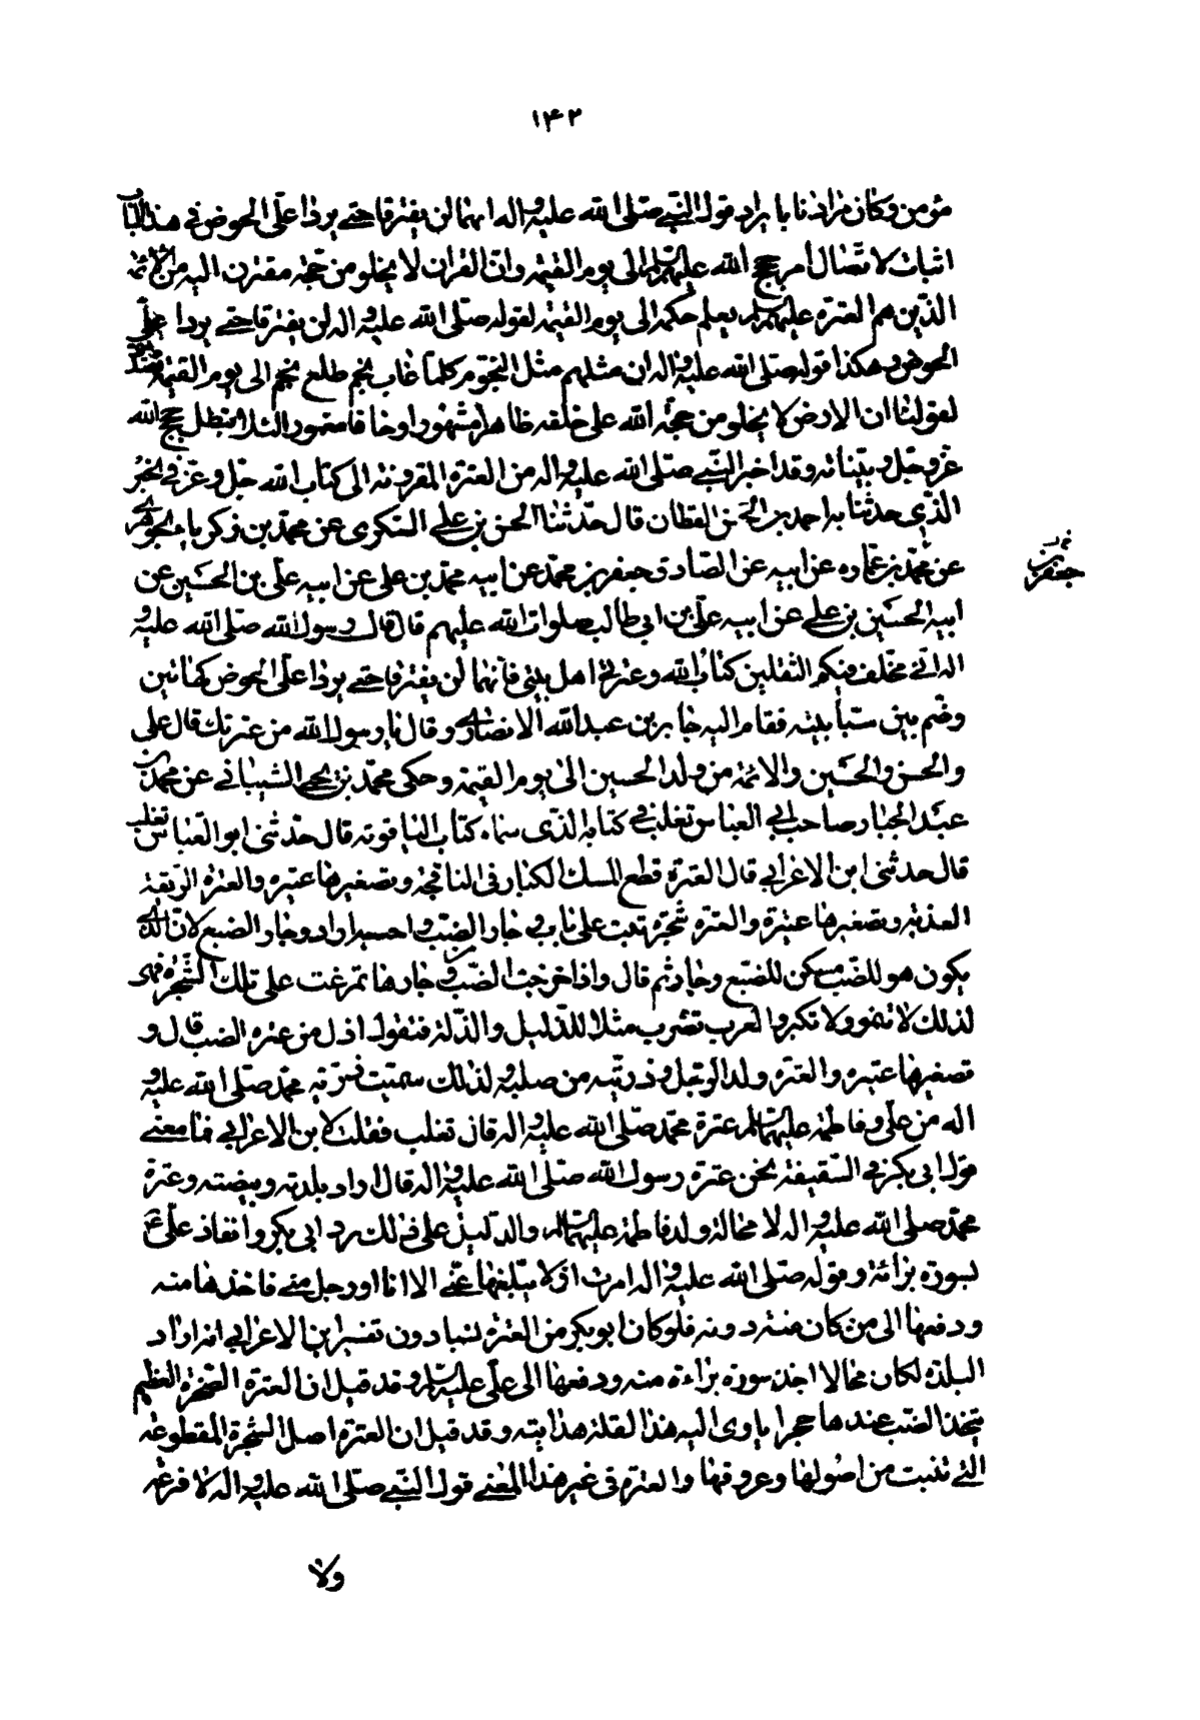 ۱۴۲
مؤمن وكان مرادنا بايراد قول النبي صلى الله عليه واله انهما لن يفترقا حتى يردا على الحوض في هذا الباب
اثبات لاتصال امر حجج الله عليهم السلم الى يوم القيمة وان القران لا يخلو من حجة مقترن اليه من الائمة
الذين هم العترة عليهم السلم يعلم حكمه الى يوم القيمة لقوله صلى الله عليه واله لن يفترقا حتى يردا على
الحوض وهكذا قوله صلى الله عليه واله ان مثلهم مثل النجوم كلما غاب نجم طلع نجم الى يوم القيمة تصديق
لقولنا ان الارض لا يخلو من حجة الله على خلقه ظاهر مشهور او خاف مغمور لئلا تبطل حجج الله
عز وجل وبيناته وقد اخبر النبي صلى الله عليه واله من العترة المقرونة الى كتاب الله جل وعز في الخبر
الذي حدثنا به احمد بن الحسن القطان قال حدثنا الحسن بن علي السكري عن محمد بن زكريا الجوهري
عن محمد بن عماره عن ابيه عن الصادق جعفر بن محمد عن ابيه محمد بن علي عن ابيه علي بن الحسين عن
جعفر بن
ابيه الحسين بن علي عن ابيه علي بن ابي طالب صلوات الله عليهم قال قال رسول الله صلى الله عليه و
اله اني مخلف فيكم الثقلين كتاب الله وعترتي اهل بيتي فانهما لن يفترقا حتى يردا على الحوض كهاتين
وضم بين سبابتيه فقام اليه جابر بن عبد الله الانصاري وقال يا رسول الله من عترتك قال علي
والحسن والحسين والائمة من ولد الحسين الى يوم القيمة وحكى محمد بن بحر الشيباني عن محمد بن
عبد الجبار صاحب ابي العباس تغلب في كتابه الذي سماه كتاب الياقوته قال حدثني ابو العباس تغلب
قال حدثني ابن الاعرابي قال العترة قطع المسك الكبار في النافجة وتصغيرها عتيره والعترة الريقة
العذبة وتصغيرها عتيرة والعترة شجرة تنبت على باب وجار الضب واحسبه اراد وجار الضبع لان الذي
يكون هو للضب مكن للضبع وجار ثم قال واذا خرجت الضب من وجارها تمرغت على تلك الشجرة فهي
لذلك لا تنمو ولا تكبر والعرب تضرب مثلا للذليل والذلة فتقول اذل من عترة الضب قال و
تصغيرها عتيره والعتره ولد الرجل وذريته من صلبه لذلك سميت ذرية محمد صلى الله عليه و
اله من علي وفاطمة عليهما السلم عترة محمد صلى الله عليه واله قال تغلب فقلت لابن الاعرابي فما معنى
قول ابي بكر في السقيفة نحن عترة رسول الله صلى الله عليه واله قال اراد بلدته وبيضته وعترة
محمد صلى الله عليه واله لا محالة ولد فاطمة عليها السلم والدليل على ذلك رد ابي بكر وانفاذ علي ع
بسورة برائة وقوله صلى الله عليه واله امرت ان لا يبلغها عني الا انا او رجل مني فاخذها منه
ودفعها الى من كان منه دونه فلو كان ابو بكر من العترة نسبا دون تفسير ابن الاعرابي انه اراد
البلدة لكان محالا اخذ سورة براءة منه ودفعها الى علي عليه السلم وقد قيل ان العترة الصخرة العظيم
يتخذ الضب عندها حجرا ياوى اليه هذا لقلة هدايته وقد قيل ان العترة اصل الشجرة المقطوعة
التي تنبت من اصولها وعروقها والعترة في غير هذا المعنى قول النبي صلى الله عليه واله لا فرعة
ولا